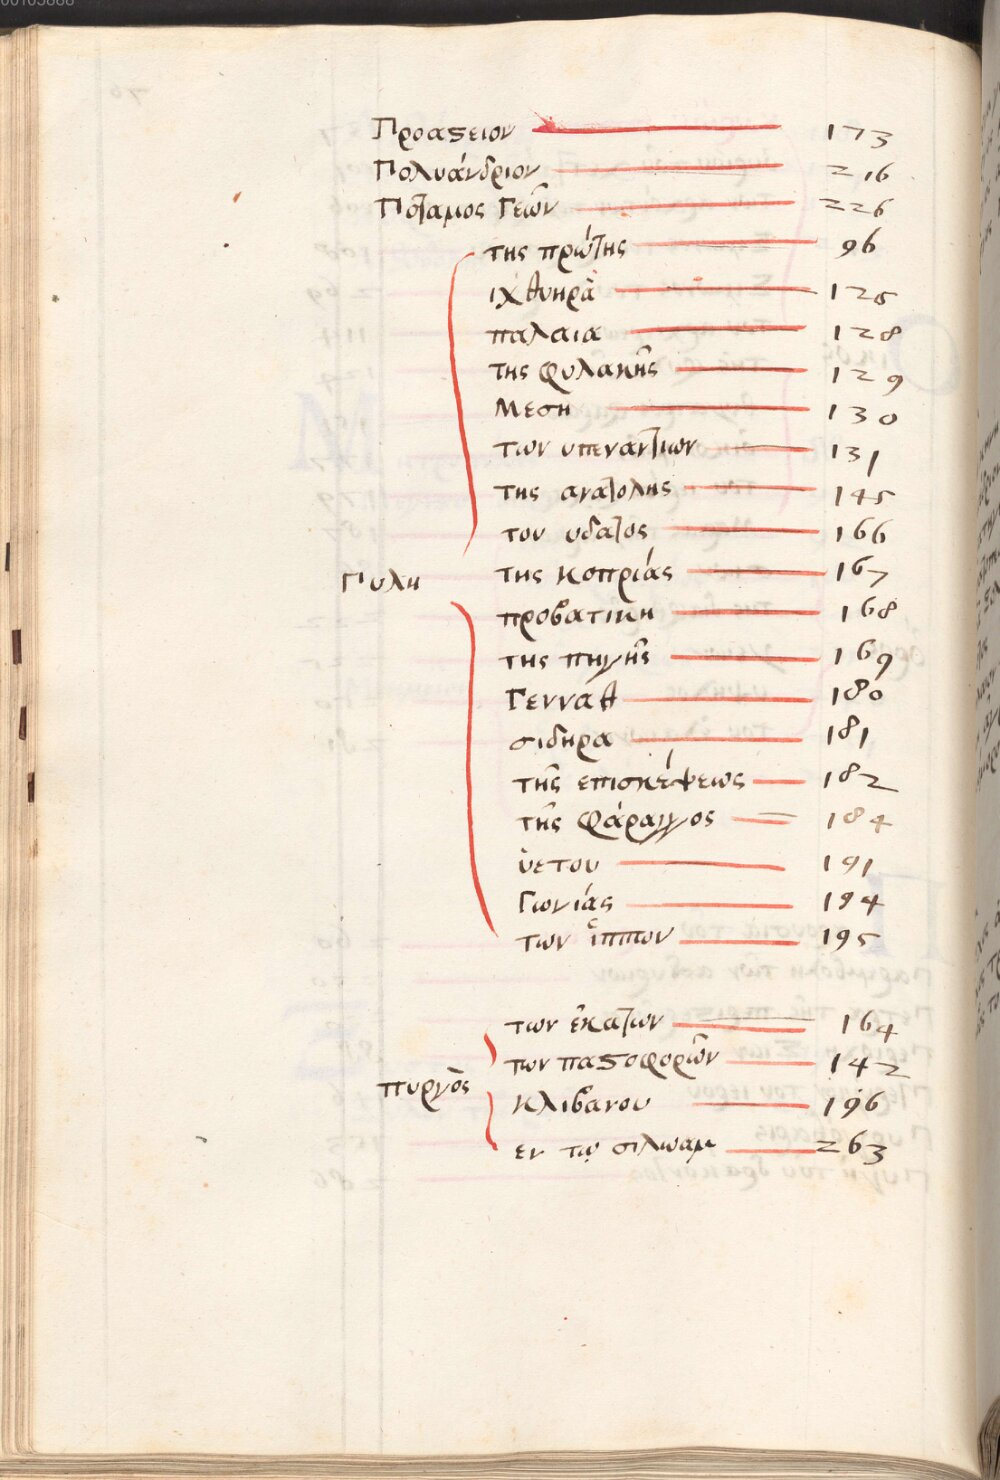 Προαϛειον 173
Πολυάνδριον 216
Ποταμος Γεῶν 226
της πρώτης 96
ιχθυηρὰ 125
παλαια 128
της φυλακῆς 129
Μεση 130
των υπεναντιων 131
της ανατολης 145
του υδατος 166
της κοπριάς 167
Πυλη
προβατικη 168
της πηγῆς 169
Γεννάθ 180
σιδηρα 181
τῆς επισκέψεως 182
τῆς φάραγγος 184
ὑετου 191
Γωνιάς 194
των ἵππων 195
των ἑκατων 164
των παϛοφοριῶν 142
πυργὸς
κλιβανου 196
εν τῳ σιλωαμ 263